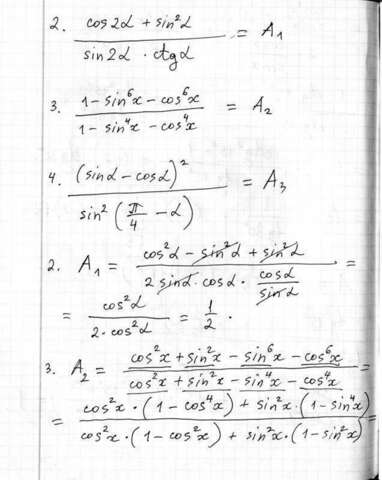 2. (cos2α + sin²α) / (sin2α · ctgα) = A₁
3. (1 − sin⁶x − cos⁶x) / (1 − sin⁴x − cos⁴x) = A₂
4. (sinα − cosα)² / sin²(π/4 − α) = A₃
2. A₁ = (cos²α − sin²α + sin²α) / (2 sinα · cosα · cosα/sinα) =
= cos²α / (2 · cos²α) = 1/2 .
3. A₂ = (cos²x + sin²x − sin⁶x − cos⁶x) / (cos²x + sin²x − sin⁴x − cos⁴x) =
= (cos²x · (1 − cos⁴x) + sin²x · (1 − sin⁴x)) / (cos²x · (1 − cos²x) + sin²x · (1 − sin²x)) =